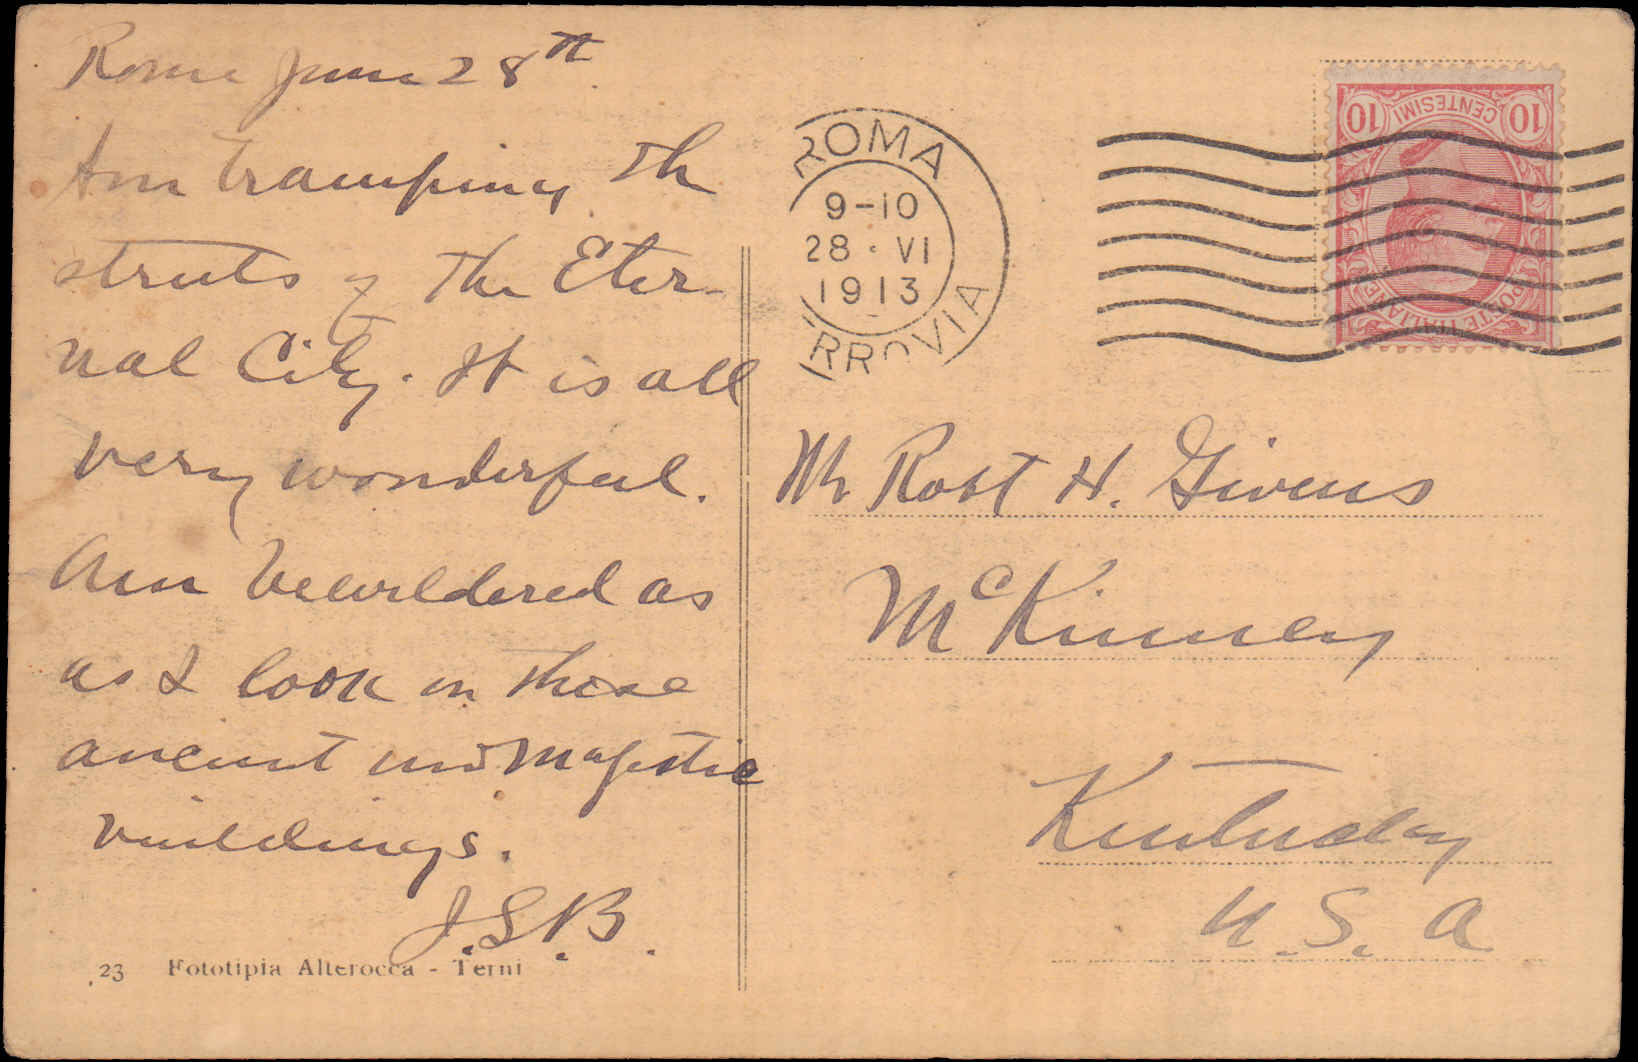 Rome June 28th
Am tramping the
streets of the Eter-
nal City. It is all
very wonderful.
Am bewildered as
as I look on these
ancient and majestic
buildings.
J.S.B.
23 Fototipia Alterocca - Terni
ROMA
9-10
28 · VI
1913
ERROVIA
10 CENTESIMI 10
POSTE ITALIANE
Mr Robt H. Givens
McKinney
Kentucky
U.S.A